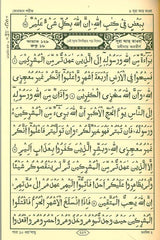 بَعْضٍ فِي كِتٰبِ اللّٰهِ اِنَّ اللّٰهَ بِكُلِّ شَيْءٍ عَلِيْمٌ
بَرَآءَةٌ مِّنَ اللّٰهِ وَرَسُوْلِهٖ اِلَى الَّذِيْنَ عٰهَدْتُّمْ مِّنَ الْمُشْرِكِيْنَ
فَسِيْحُوْا فِي الْاَرْضِ اَرْبَعَةَ اَشْهُرٍ وَّاعْلَمُوْٓا اَنَّكُمْ غَيْرُ مُعْجِزِي
اللّٰهِ وَاَنَّ اللّٰهَ مُخْزِي الْكٰفِرِيْنَ وَاَذَانٌ مِّنَ اللّٰهِ وَرَسُوْلِهٖٓ
اِلَى النَّاسِ يَوْمَ الْحَجِّ الْاَكْبَرِ اَنَّ اللّٰهَ بَرِيْٓءٌ مِّنَ الْمُشْرِكِيْنَ
وَرَسُوْلُهٗ فَاِنْ تُبْتُمْ فَهُوَ خَيْرٌ لَّكُمْ وَاِنْ تَوَلَّيْتُمْ فَاعْلَمُوْٓا
اَنَّكُمْ غَيْرُ مُعْجِزِي اللّٰهِ وَبَشِّرِ الَّذِيْنَ كَفَرُوْا بِعَذَابٍ اَلِيْمٍ
اِلَّا الَّذِيْنَ عٰهَدْتُّمْ مِّنَ الْمُشْرِكِيْنَ ثُمَّ لَمْ يَنْقُصُوْكُمْ شَيْئًا وَّلَمْ
يُظَاهِرُوْا عَلَيْكُمْ اَحَدًا فَاَتِمُّوْٓا اِلَيْهِمْ عَهْدَهُمْ اِلٰى مُدَّتِهِمْ
اِنَّ اللّٰهَ يُحِبُّ الْمُتَّقِيْنَ فَاِذَا انْسَلَخَ الْاَشْهُرُ الْحُرُمُ فَاقْتُلُوا
الْمُشْرِكِيْنَ حَيْثُ وَجَدْتُّمُوْهُمْ وَخُذُوْهُمْ وَاحْصُرُوْهُمْ وَاقْعُدُوْا